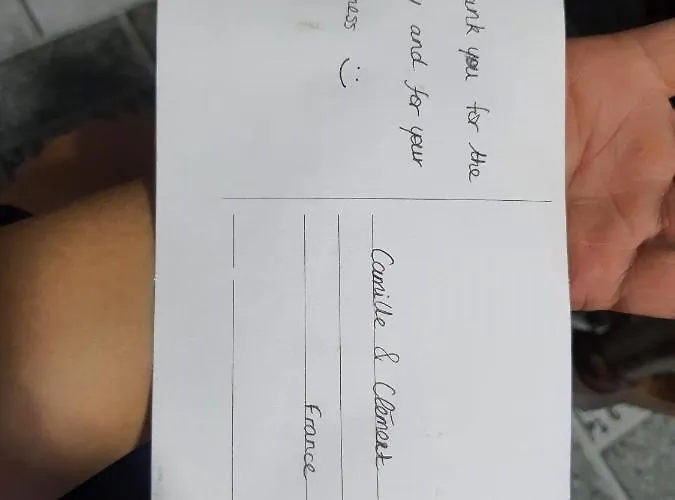 ank you for the
and for your
ness :)
Camille & Clément
France